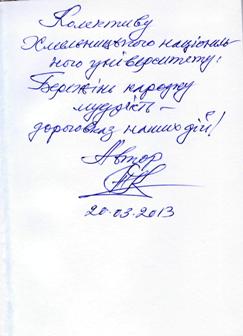 Колективу
Хмельницького національ-
ного університету!
Бережіть народну
мудрість –
дороговказ наших дій!
Автор
20.03.2013